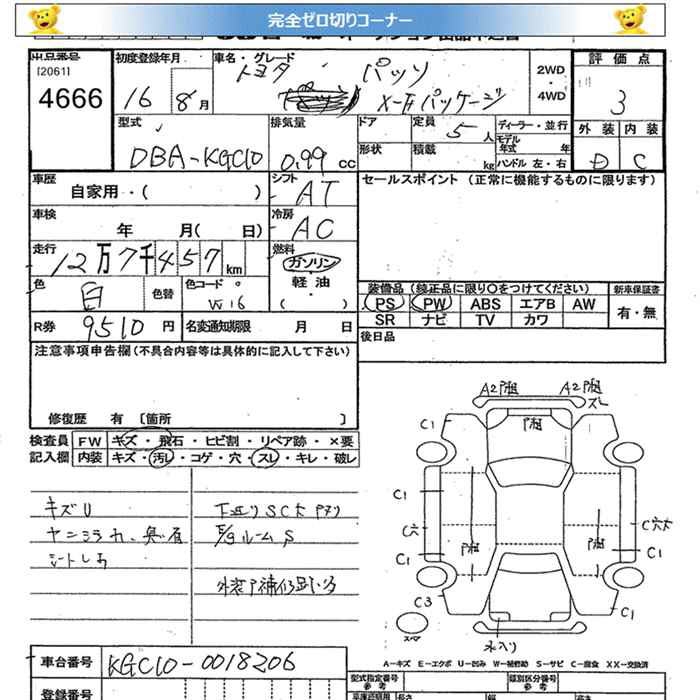 完全ゼロ切りコーナー
出品番号
[2061]
4666
初度登録年月
16 8月
車名・グレード
トヨタ パッソ
X-Fパッケージ
2WD
・
4WD
評価点
3
外装 内装
D C
型式
DBA-KGC10
排気量
0.99 CC
ドア
定員
5人
ディーラー・並行
形状
積載
kg
モデル年式 年
ハンドル 左・右
車歴
自家用・( )
シフト
AT
セールスポイント (正常に機能するものに限ります)
車検
年 月( 日)
冷房
AC
走行
12万7千457km
燃料
ガソリン
軽油
( )
色
白
色替
色コード
W16
装備品 (純正品に限り○をつけてください)
新車保証書
PS PW ABS エアB AW
SR ナビ TV カワ
有・無
R券
9510円
名変通知期限 月 日
後日品
注意事項申告欄 (不具合内容等は具体的に記入して下さい)
修復歴 有 〔箇所 〕
検査員
記入欄
FW キズ・飛石・ヒビ割・リペア跡・×要
内装 キズ・汚レ・コゲ・穴・スレ・キレ・破レ
キズU
下廻りSC大
ルームS
A2 A2
スレ
C1
C1
C1
C穴
C1
C3
C穴大
C1
C1
スペア
A−キズ E−エクボ U−凹み W−補修跡 S−サビ C−腐食 XX−交換済
車台番号
KGC10-0018206
登録番号
型式指定番号
参考
類別区分番号
参考
長さ
幅
高さ